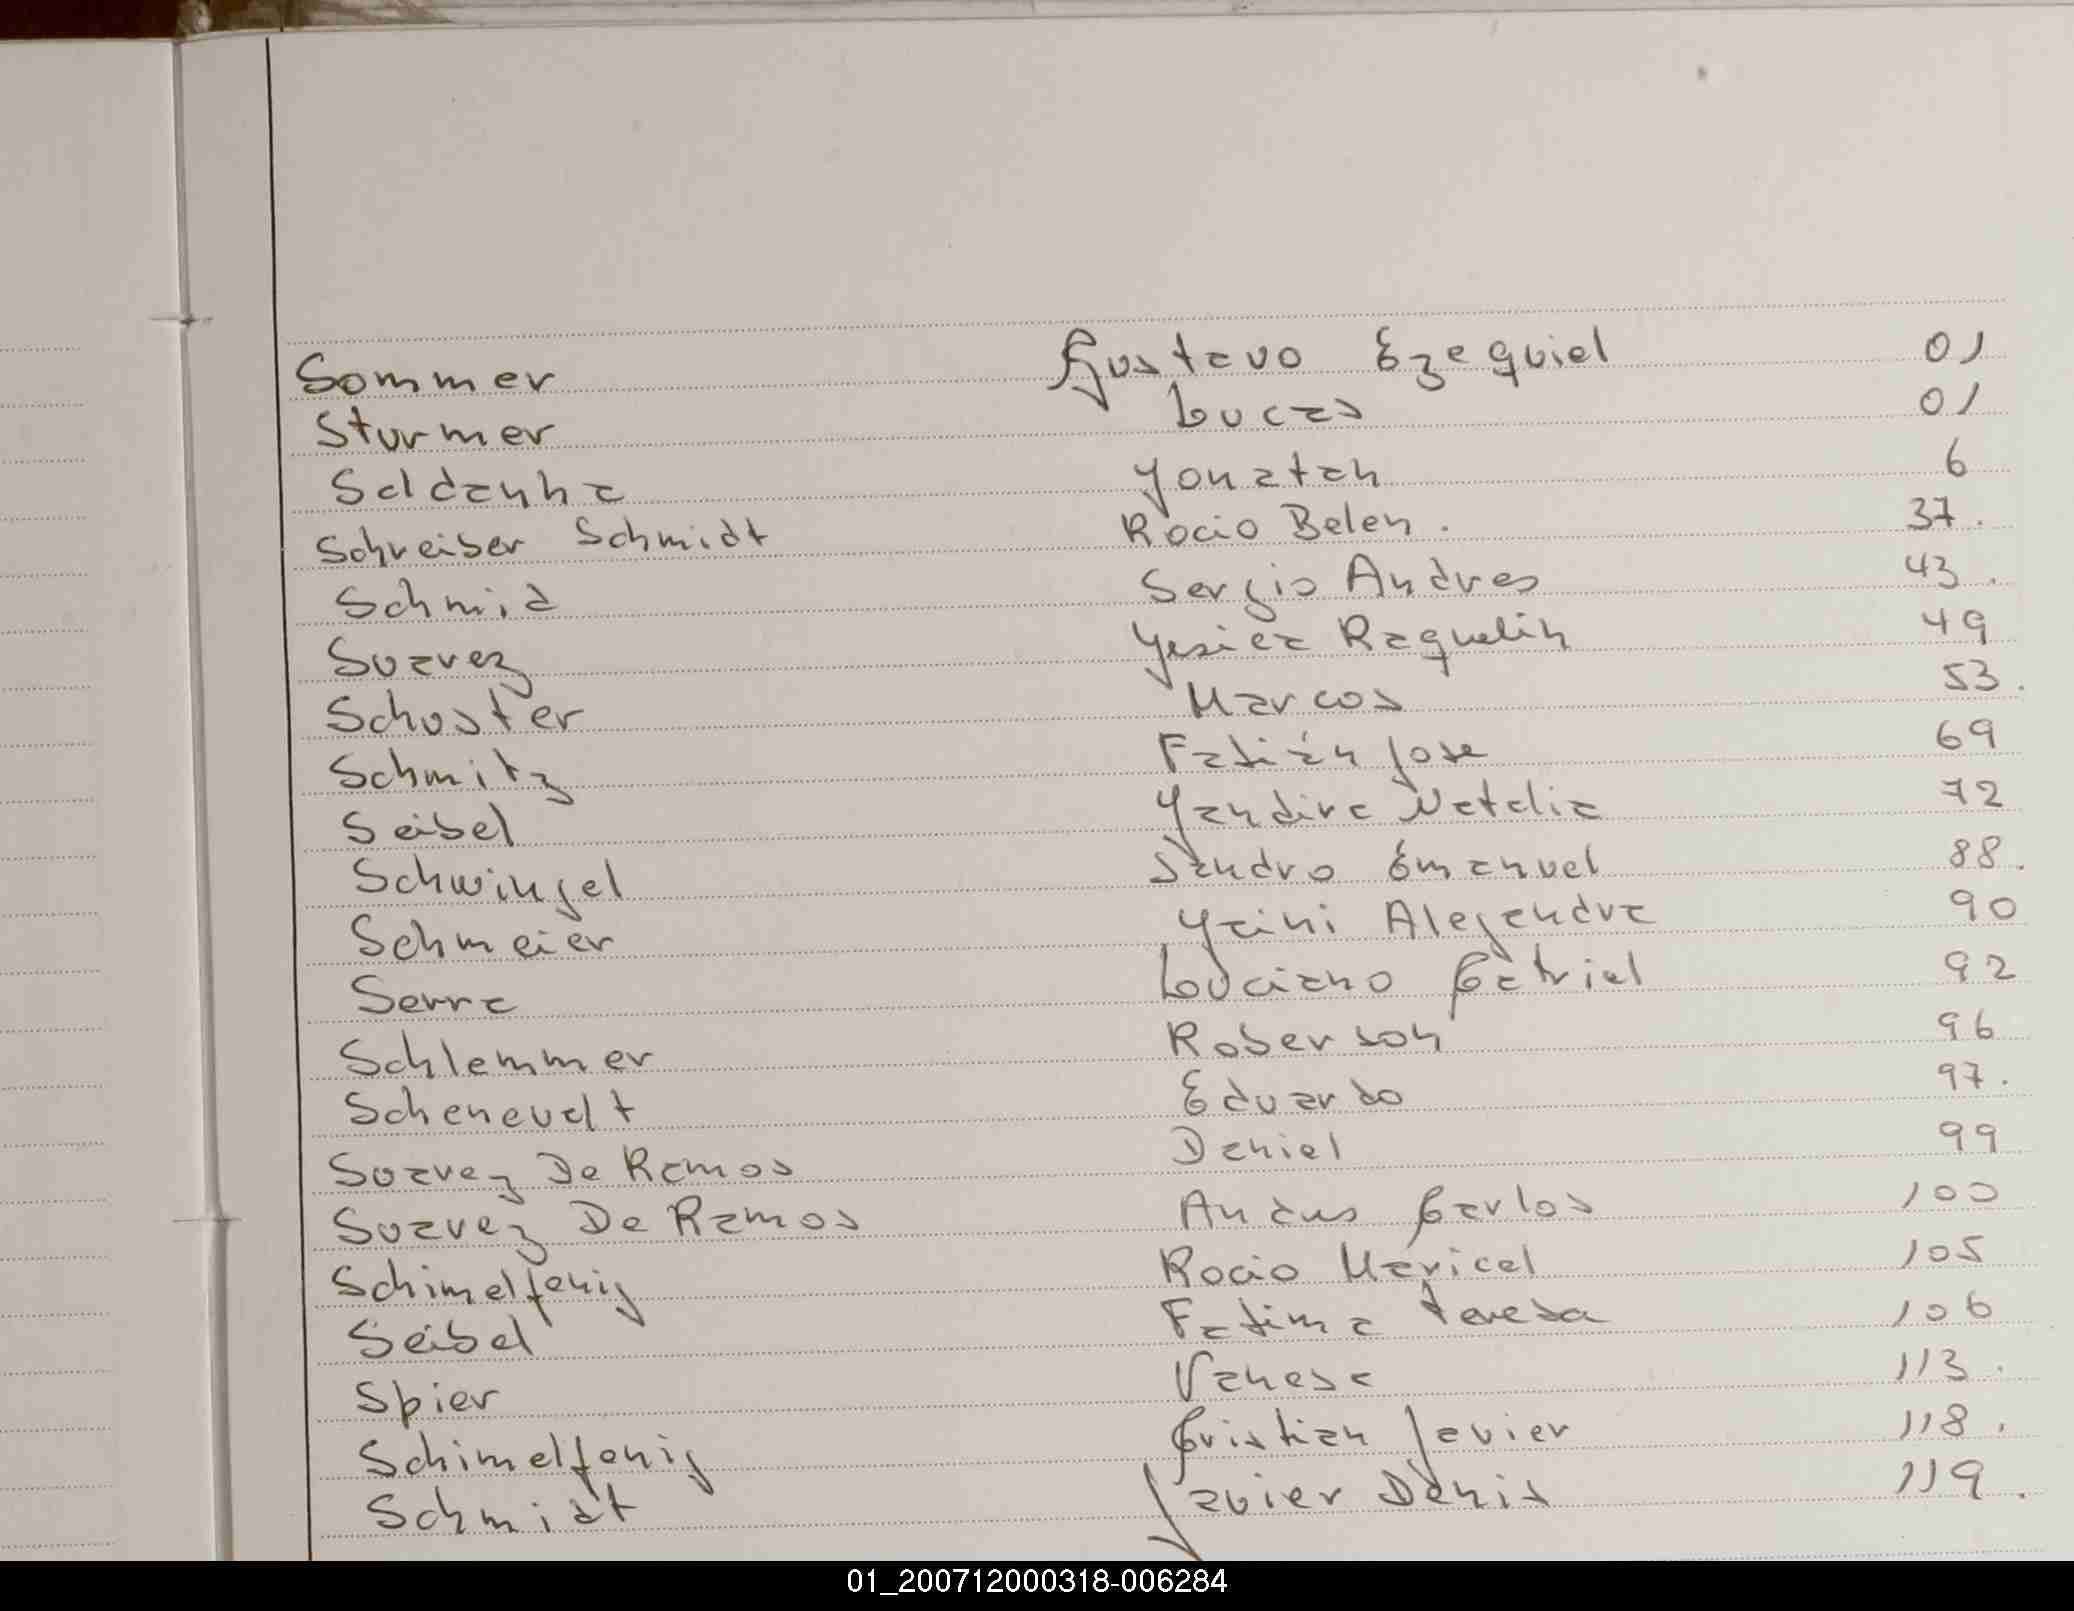 Sommer Gustavo Ezequiel 01
Sturmer Lucas 01
Saldanha Yonatan 6
Schreiber Schmidt Rocio Belen. 37.
Schmid Sergio Andres 43.
Suarez Yesica Raquelin 49
Schuster Marcos 53.
Schmitz Fabián Jose 69
Seibel Yandira Natalia 72
Schwingel Sandro Emanuel 88.
Schmeier Yaini Alejandra 90
Serra Luciano Gabriel 92
Schlemmer Roberson 96
Schenevalt Eduardo 97.
Suarez De Ramos Daniel 99
Suarez De Ramos Carlos 100
Schimelfenig Rocio Maricel 105
Seibel Fatima Teresa 106
Spier Vanesa 113.
Schimelfenig Cristian Javier 118.
Schmidt Javier Denis 119.
01_200712000318-006284